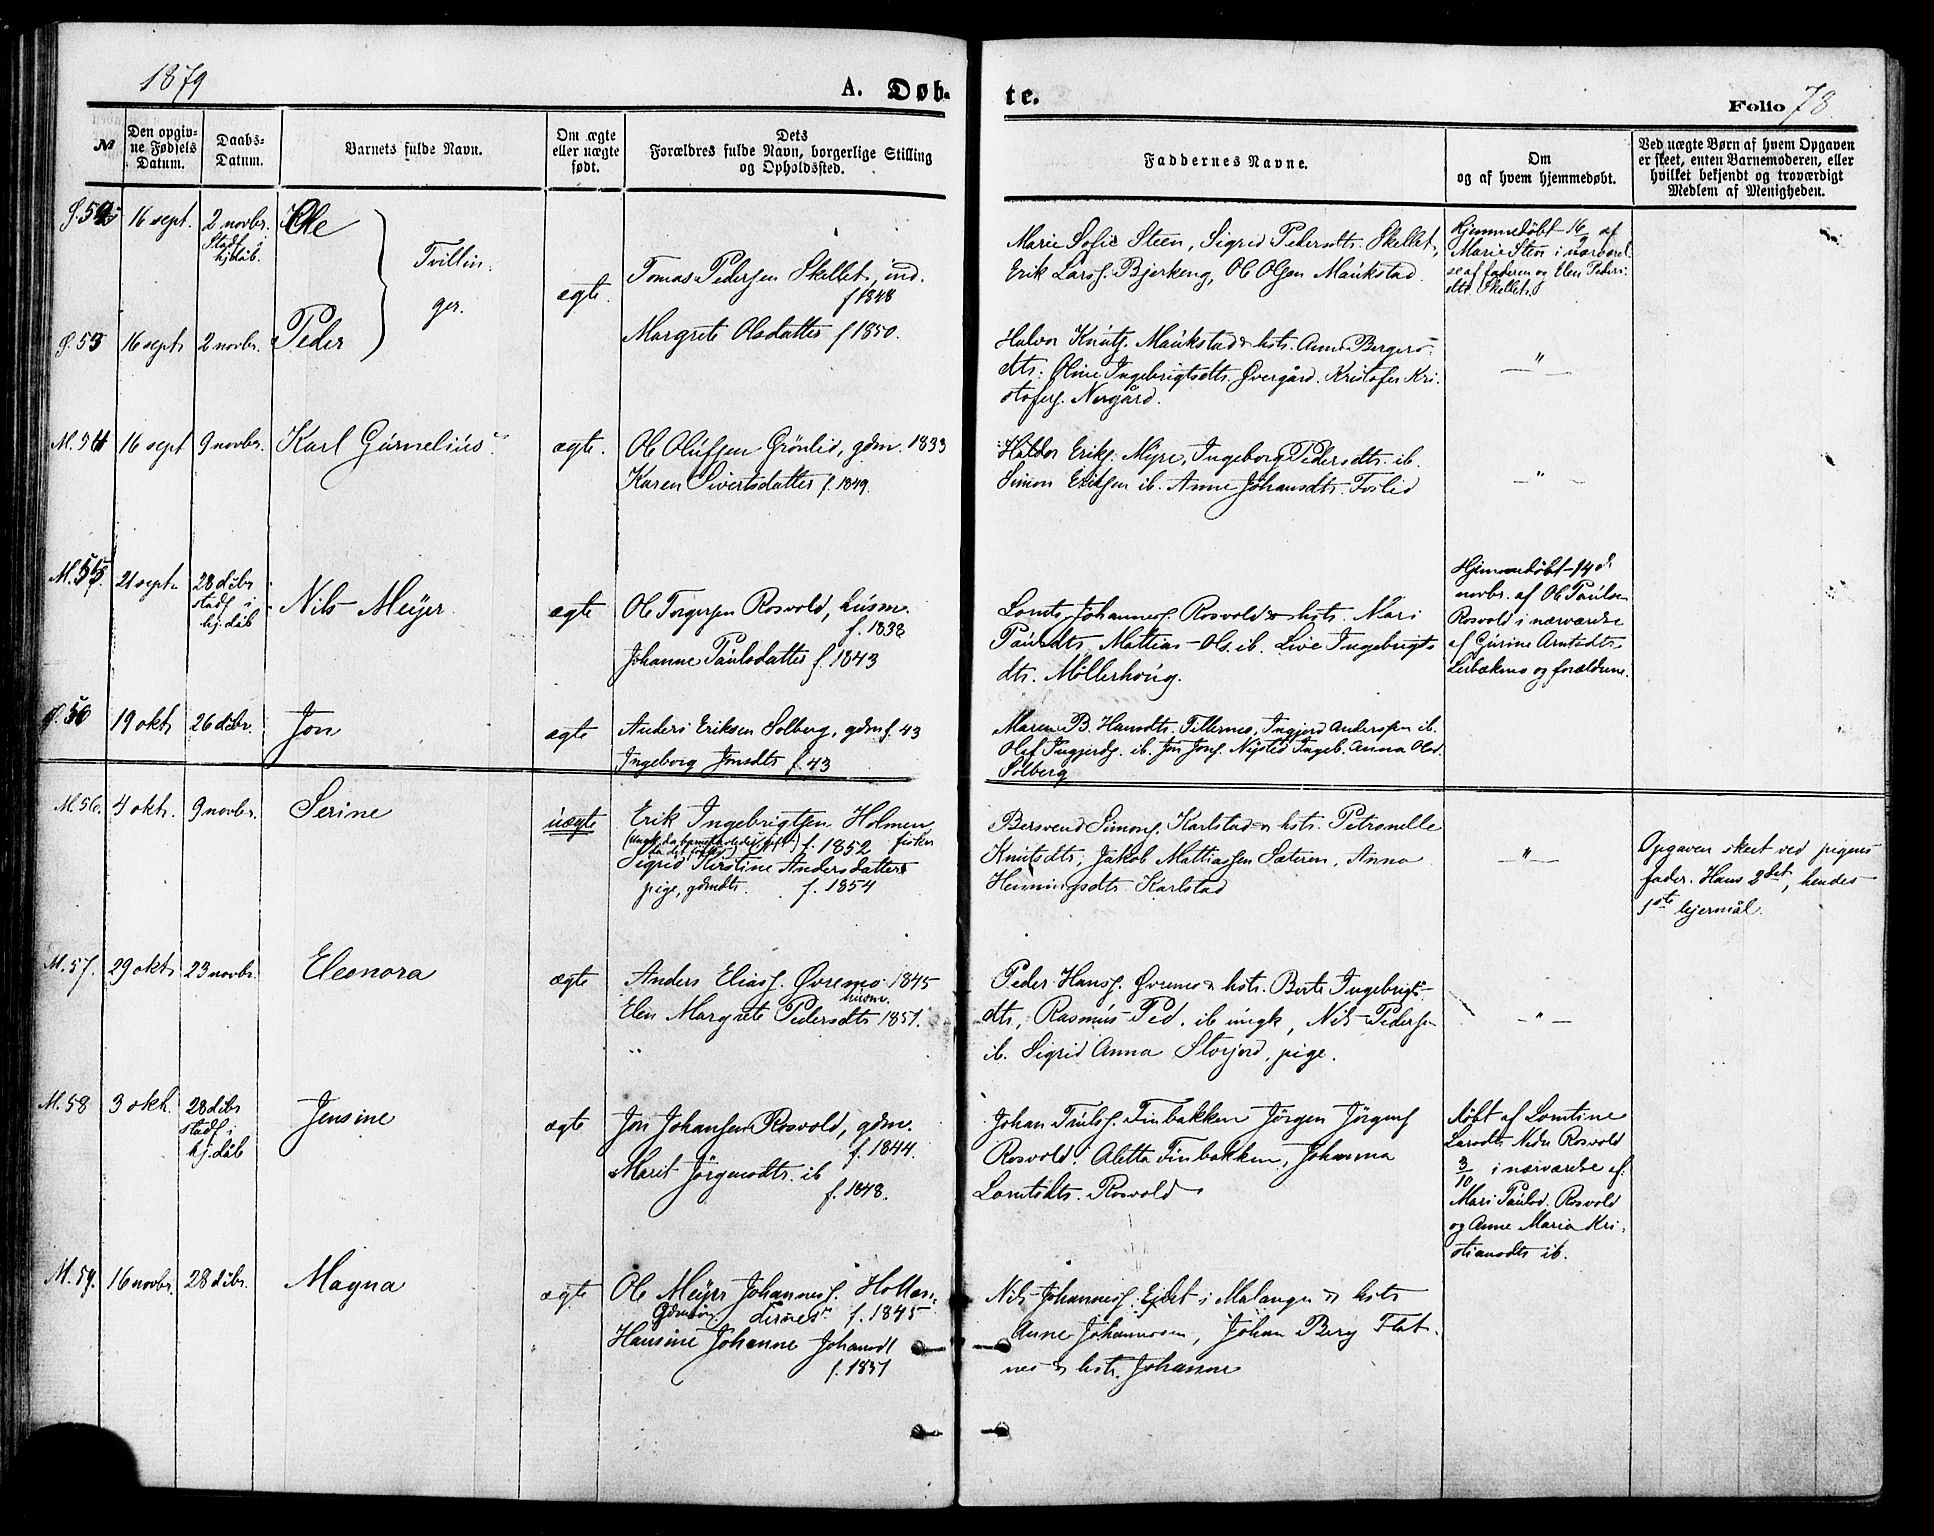 1879
A. Døb-
te.
Folio 78.
№
Den opgiv-
ne Fødsels
Datum.
Daabs-
Datum.
Barnets fulde Navn.
Om ægte
eller uægte
født.
Dets
Forældres fulde Navn, borgerlige Stilling
og Opholdssted.
Faddernes Navne.
Om
og af hvem hjemmedøbt.
Ved uægte Børn af hvem Opgaven
er skeet, enten Barnemoderen, eller
hvilket bekjendt og troværdigt
Medlem af Menigheden.
16 sept. 2 novbr.
Stadf i
hjdåb.
Ole
Tvillin-
ger.
ægte.
Tomas Pedersen Skellet, ind.
f 1848
Margrete Olsdatter f 1850.
Marie Sofie Steen, Sigrid Pedersdtr. Skellet,
Erik Larss. Bjerkeng, Ol Olsen Maukstad.
Hjemmedøbt 16/9 af
Marie Steen i nærværel-
se af faderen og Elen Peders-
dtr. Skellet.
16 sept. 2 novbr. Peder
Halvor Knuts. Maukstad & hstr. Anne Bergers-
dtr. Oline Ingebrigtsdtr. Øvergård. Kristofer Kri-
stofers. Nergård.
— " —
M. 54 16 sept 9 novbr. Karl Gurnelius
ægte.
Ol Olufsen Grönlid, gdm. 1833
Karen Sivertsdatter f. 1849.
Haldor Eriks. Myre, Ingeborg Pedersdtr. ib.
Simon Eriksen ib. Anne Johansdtr. Foslid
— " —
M. 55. 21 sept. 28 dcbr
stadf i
hj. dåb
Nils Meyer
ægte
Ol Torgersen Rosvold, husm.
f. 1838
Johanne Paulsdatter f 1843
Lornts Johanness. Rosvold & hstr. Mari
Paulsdtr, Mattias Ols. ib. Live Ingebrigts
dtr. Møllerhaug.
Hjemmedøbt 14de
novbr. af Ol Paulsen
Rosvold i nærværelse
af Gurine Arntsdtr
Leibækmo og forældrene.
19 okt. 26 dcbr. Jon
ægte
Anders Eriksen Solberg, gdm f. 43
Ingeborg Jonsdtr f. 43
Maren B. Hansdtr. Tillernes, Ingjerd Anderssen ib.
Olef Ingjerds. ib. Jon Jons. Nysted Ingeb. Anna Olsd.
Solberg
M. 56. 4 okt. 9 novbr. Serine
uægte
Erik Ingebrigtsen Holmen
f. 1852
Sigrid Kirstine Andersdatter
pige, gdmdtr. f. 1854
Bersvend Simons. Karlstad & hstr. Petronelle
Knutsdtr, Jakob Mattiassen Sæteren, Anna
Henningsdtr. Karlstad
— " —
Opgaven skeet ved pigens
fader. Hans 2det, hendes
1ste lejermål.
M. 57. 29 okt. 23 novbr. Eleonora
ægte
Anders Eliass. Øvremo 1845
husm.
Elen Margrete Pedersdtr 1851.
Peder Hanss. Øvremo & hstr. Berte Ingebrigts-
dtr, Rasmus Ped. ib ungk, Nils Pedersen
ib. Sigrid Anna Storjord, pige.
— " —
M. 58 3 okt. 28 dcbr
stadf i
hj. dåb
Jensine
ægte
Jon Johansen Rosvold, gdm.
f. 1844.
Marit Jörgensdtr. ib
f. 1848.
Johan Truls. Finbakken Jörgen Jörgens
Rosvold. Aletta Finbakken, Johanna
Lorntsdtr. Rosvold
døbt af Lorntine
Larsdtr Nedre Rosvold
3/10 i nærværelse af
Mari Paulsd. Rosvold
og Anne Maria Kri-
stiansdtr ib.
M. 59. 16 novbr. 28 dcbr. Magna
ægte
Ol Meyer Johanness. Holten
f. 1845
Hansine Johanne Johansd
f. 1851
Nils Johanness. Ejdet i Malangen & hstr
Anne Johannesen, Johan Berg Flat-
nes & hstr. Johanne